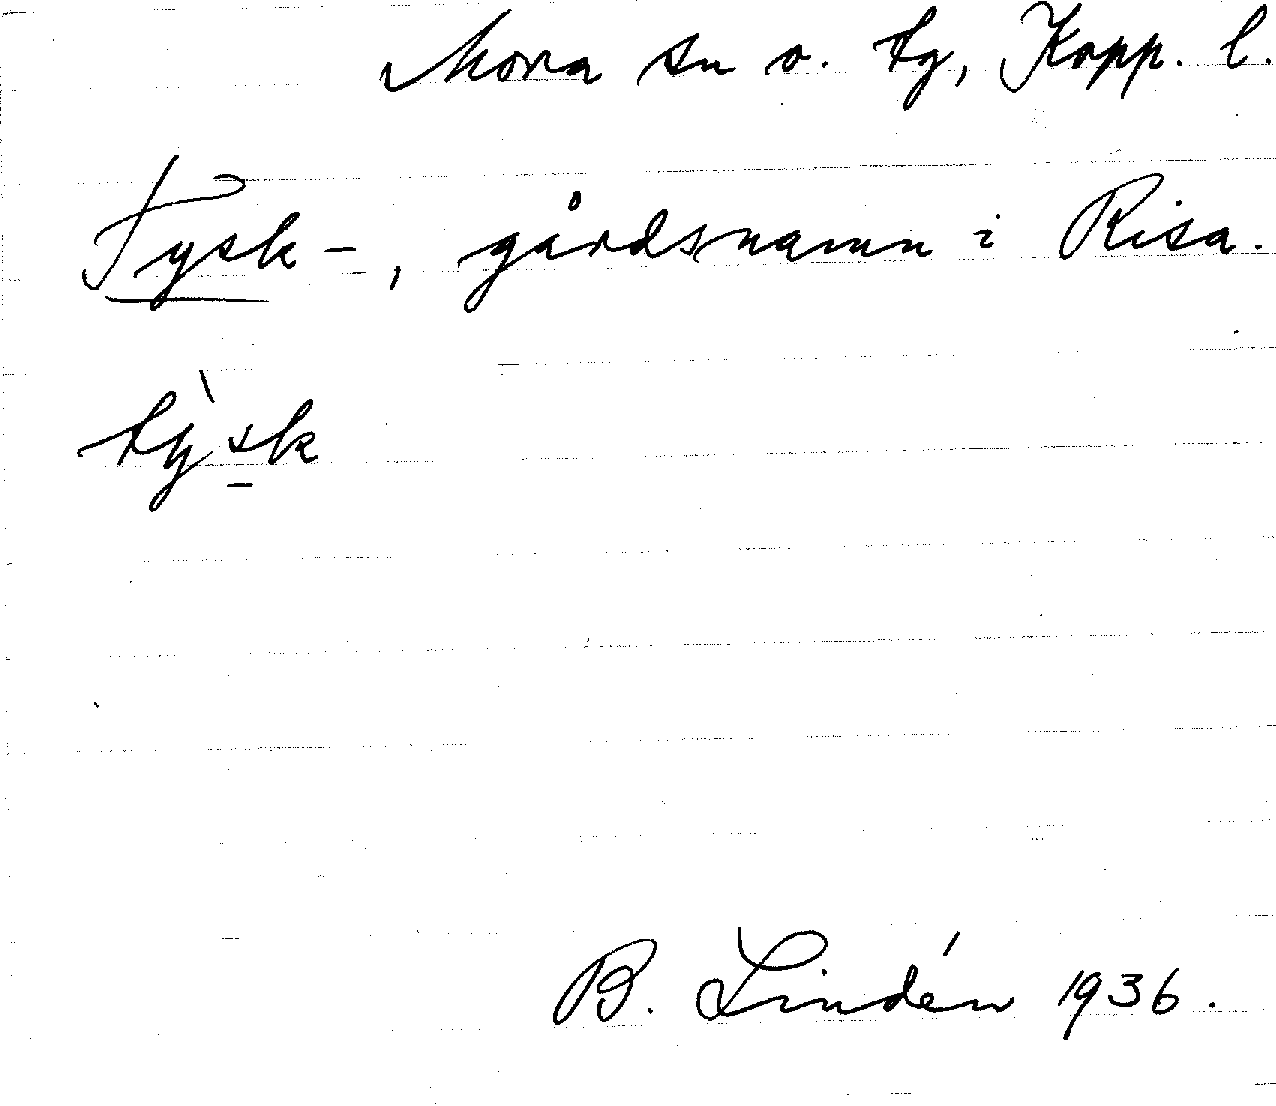 Mora sn o. tg, Kopp. l.
Tysk-, gårdsnamn i Risa.
tỳs̠k
B. Lindén 1936.